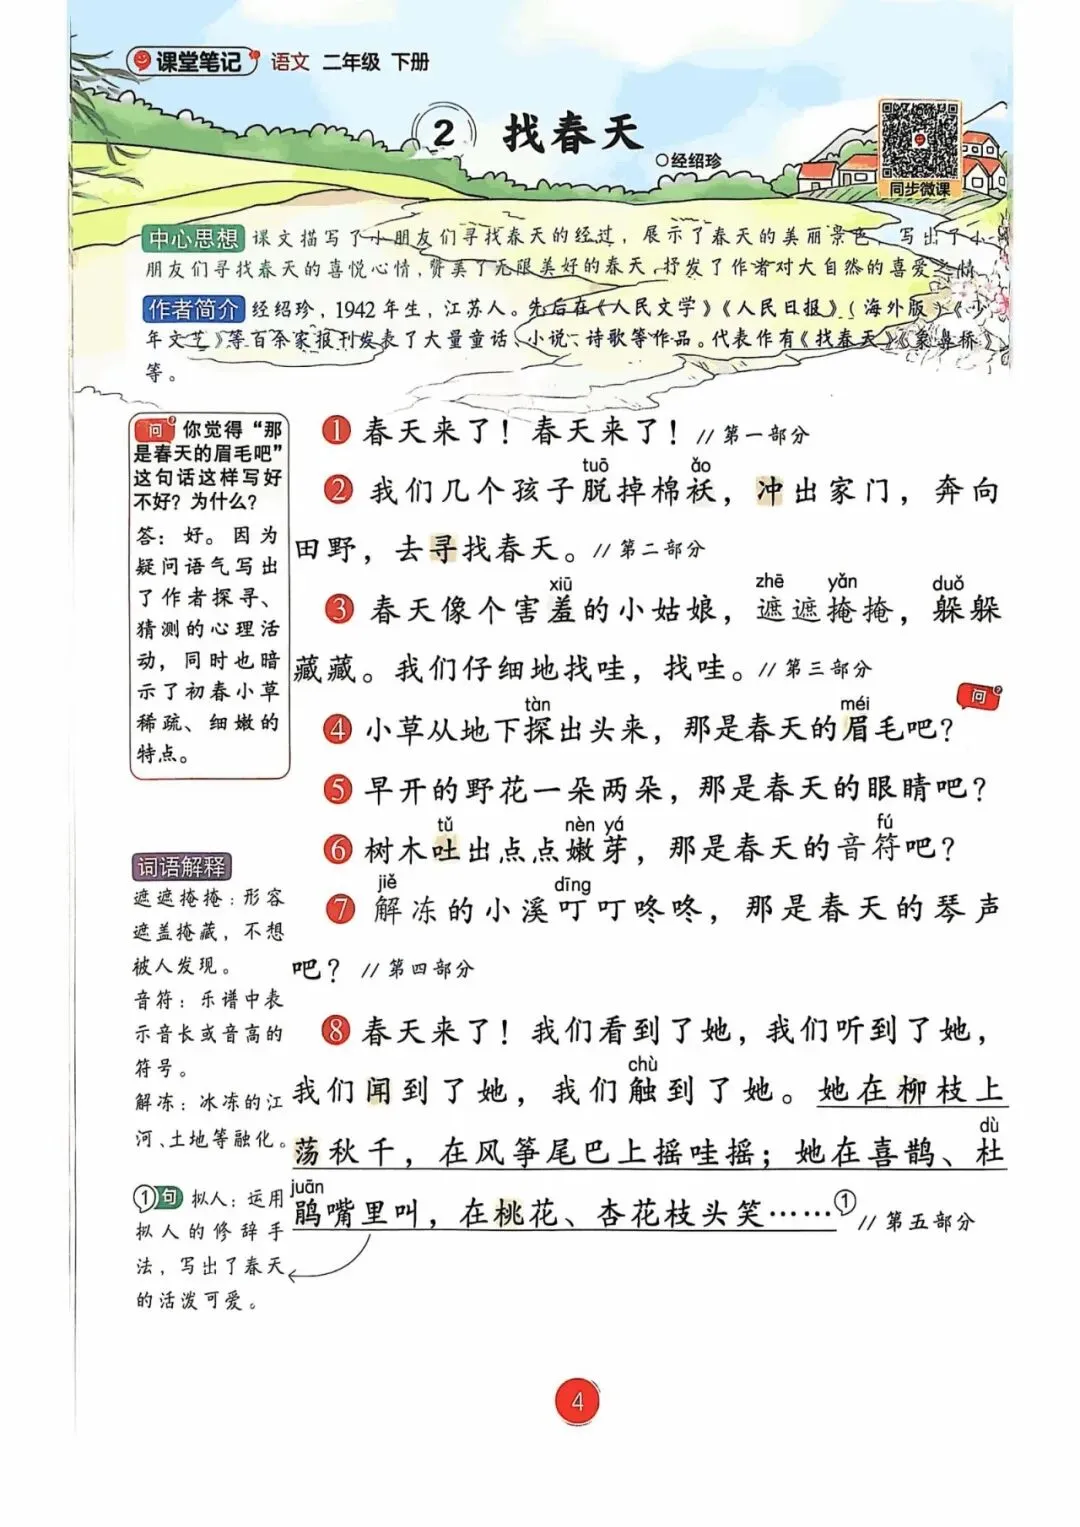 课堂笔记 语文 二年级 下册
2 找春天
○经绍珍
同步微课
中心思想 课文描写了小朋友们寻找春天的经过，展示了春天的美丽景色，写出了小
朋友们寻找春天的喜悦心情，赞美了无限美好的春天，抒发了作者对大自然的喜爱之情
作者简介 经绍珍，1942年生，江苏人。先后在《人民文学》《人民日报》（海外版）《少
年文艺》等百余家报刊发表了大量童话、小说、诗歌等作品。代表作有《找春天》《象鼻桥》
等。
问 你觉得“那
是春天的眉毛吧”
这句话这样写好
不好？为什么？
答：好。因为
疑问语气写出
了作者探寻、
猜测的心理活
动，同时也暗
示了初春小草
稀疏、细嫩的
特点。
词语解释
遮遮掩掩：形容
遮盖掩藏，不想
被人发现。
音符：乐谱中表
示音长或音高的
符号。
解冻：冰冻的江
河、土地等融化。
①句 拟人：运用
拟人的修辞手
法，写出了春天
的活泼可爱。
1 春天来了！春天来了！//第一部分
tuō ǎo
2 我们几个孩子脱掉棉袄，冲出家门，奔向
田野，去寻找春天。//第二部分
xiū zhē yǎn duǒ
3 春天像个害羞的小姑娘，遮遮掩掩，躲躲
藏藏。我们仔细地找哇，找哇。//第三部分
tàn méi 问
4 小草从地下探出头来，那是春天的眉毛吧？
5 早开的野花一朵两朵，那是春天的眼睛吧？
tǔ nèn yá fú
6 树木吐出点点嫩芽，那是春天的音符吧？
jiě dīng
7 解冻的小溪叮叮咚咚，那是春天的琴声
吧？//第四部分
8 春天来了！我们看到了她，我们听到了她，
chù
我们闻到了她，我们触到了她。她在柳枝上
dù
荡秋千，在风筝尾巴上摇哇摇；她在喜鹊、杜
juān
鹃嘴里叫，在桃花、杏花枝头笑……① //第五部分
4